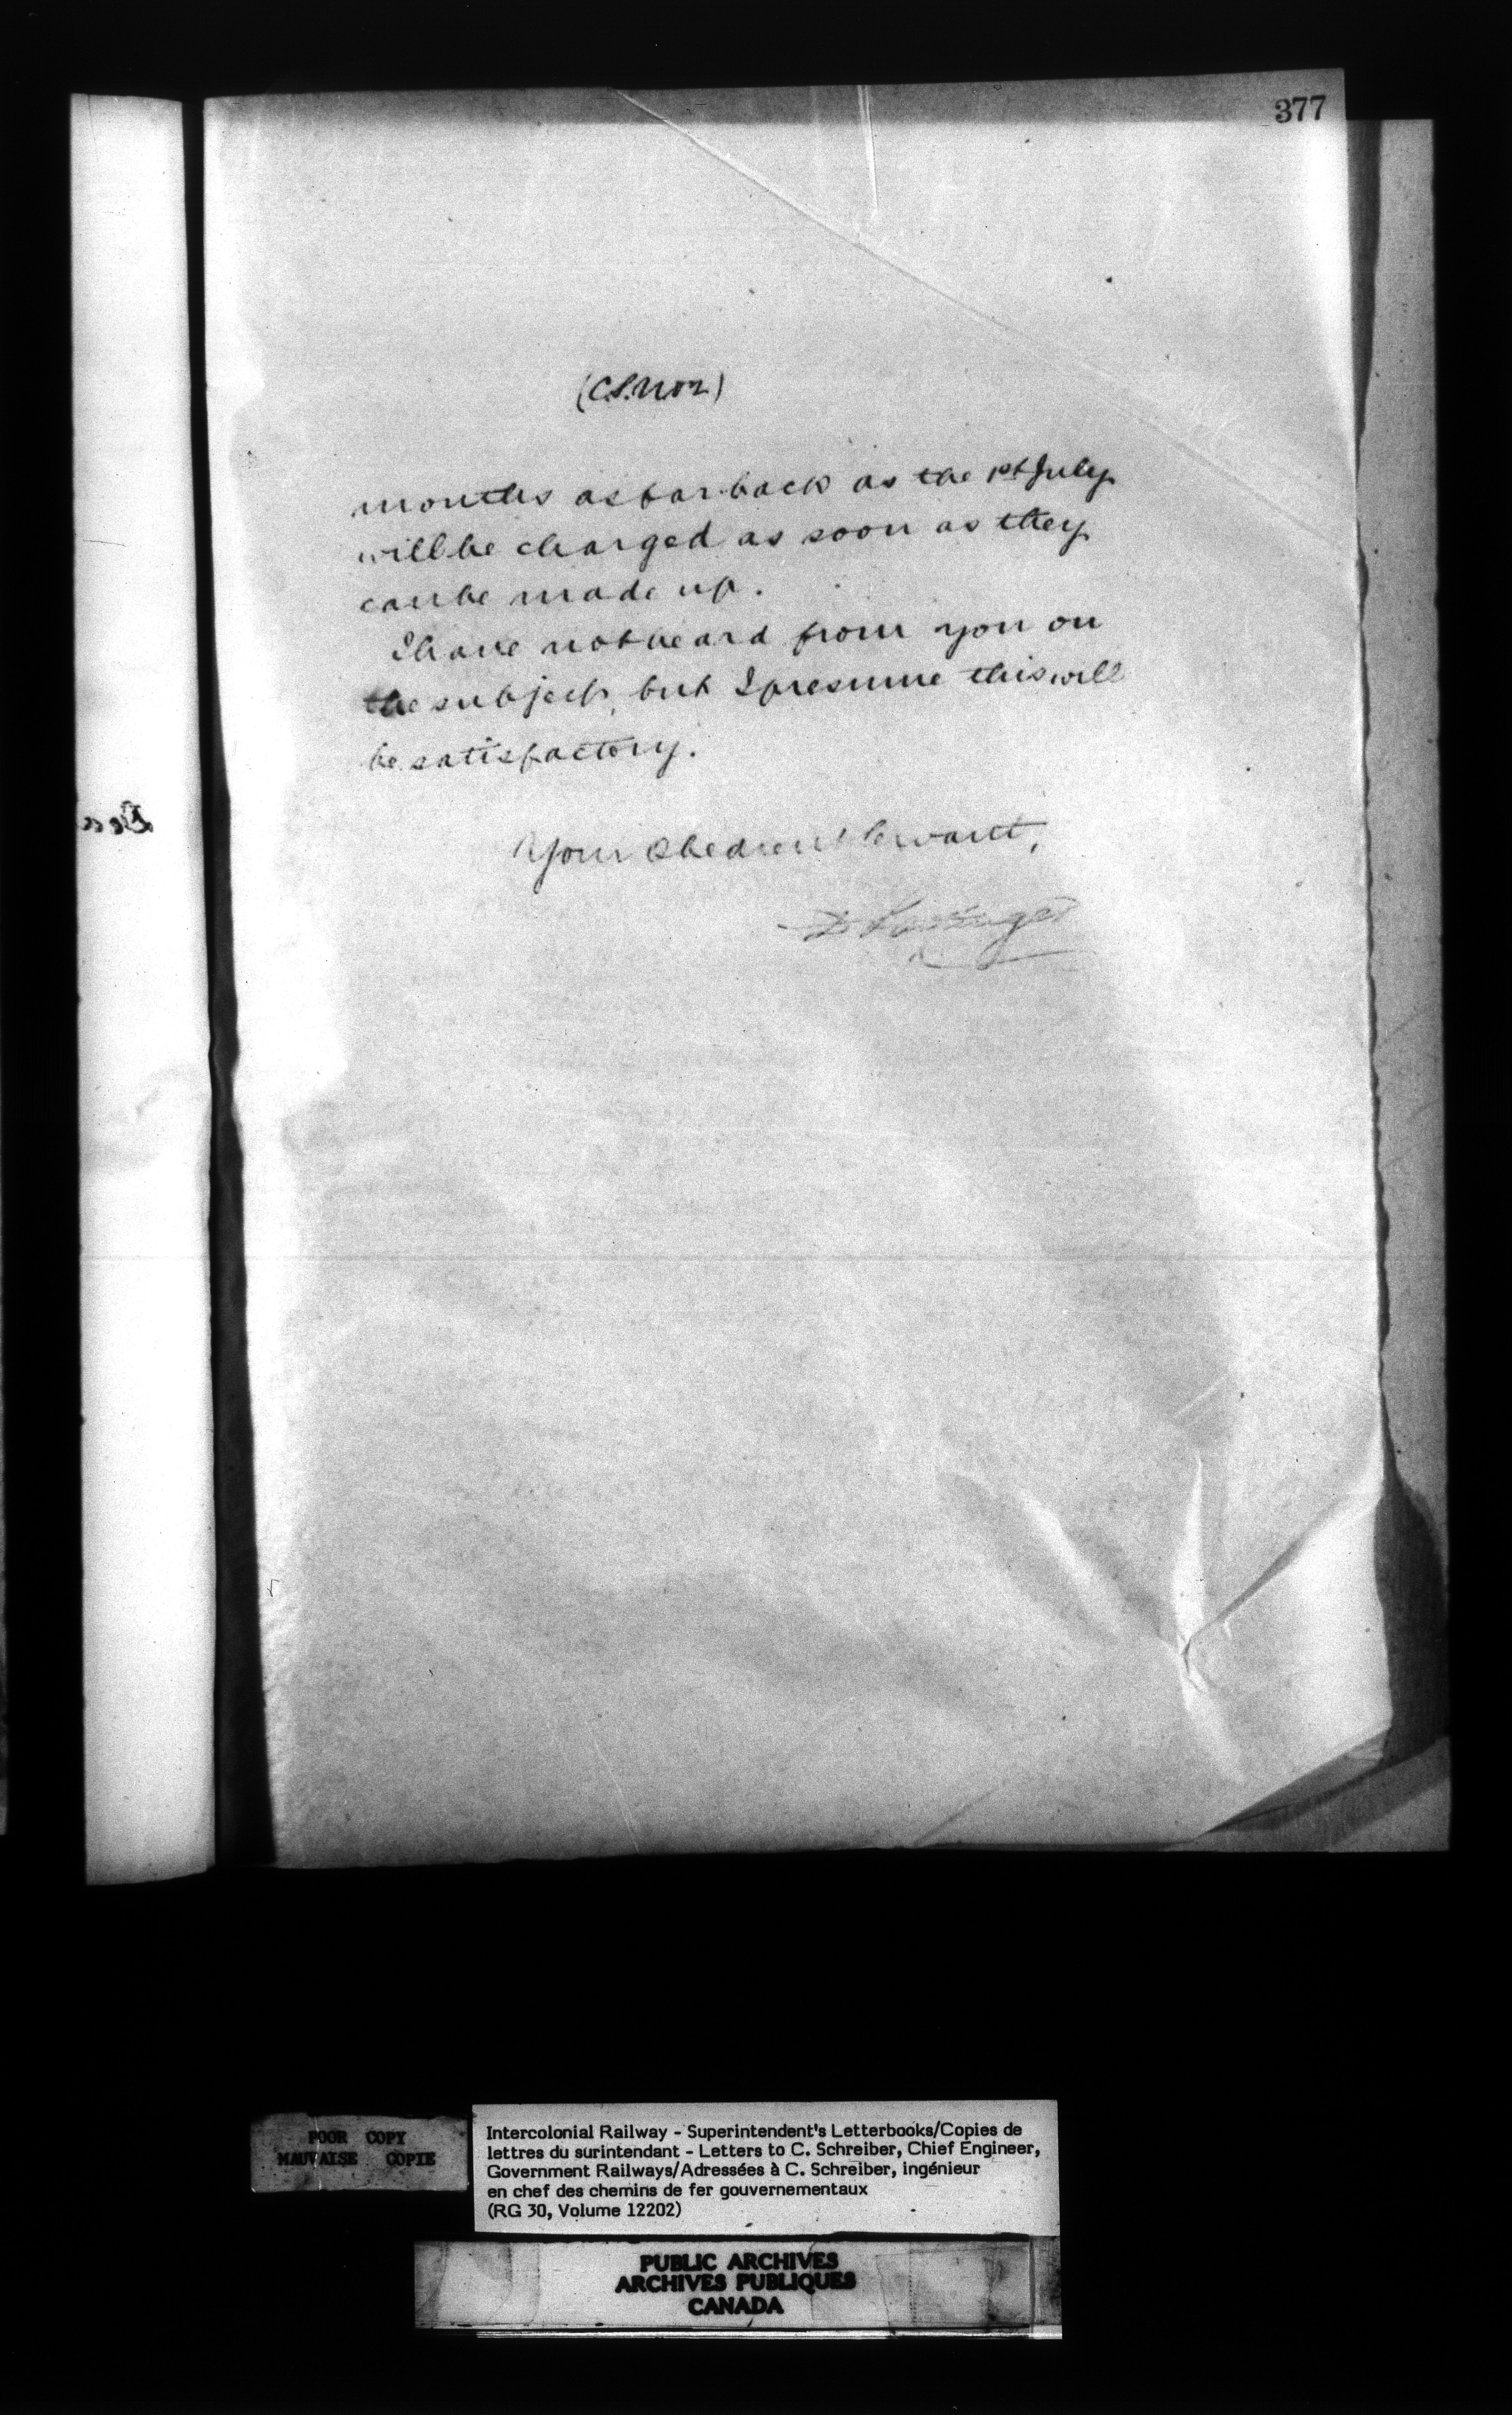 377
(C.S. No 2)
months as far back as the 1st July
will be charged as soon as they
can be made up.
I have not heard from you on
the subject, but I presume this will
be satisfactory.
Your Obedient Servant,
D Pottinger
POOR COPY
MAUVAISE COPIE
Intercolonial Railway - Superintendent's Letterbooks/Copies de
lettres du surintendant - Letters to C. Schreiber, Chief Engineer,
Government Railways/Adressées à C. Schreiber, ingénieur
en chef des chemins de fer gouvernementaux
(RG 30, Volume 12202)
PUBLIC ARCHIVES
ARCHIVES PUBLIQUES
CANADA